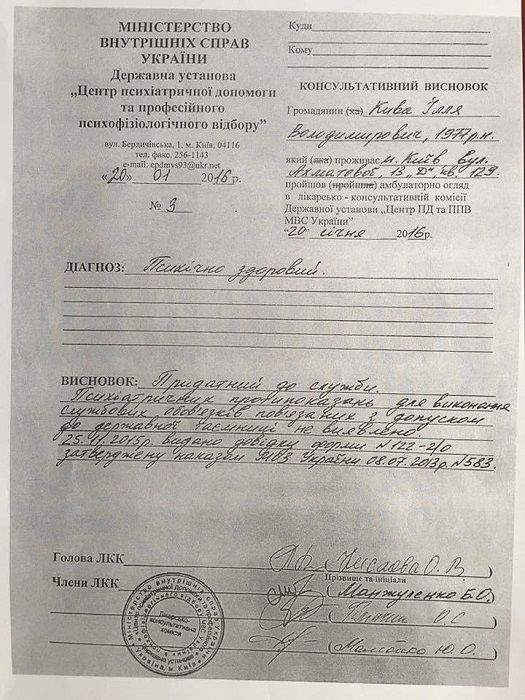 МІНІСТЕРСТВО
ВНУТРІШНІХ СПРАВ
УКРАЇНИ
Державна установа
„Центр психіатричної допомоги
та професійного
психофізіологічного відбору”
вул. Бердичівська, 1, м. Київ, 04116
тел. факс. 256-1143
e-mail: cpdmvs93@ukr.net
«20» 01 2016р.
№ 3
Куди
Кому
КОНСУЛЬТАТИВНИЙ ВИСНОВОК
Громадянин (ка) Кива Ілля
Володимирович, 1977 р.н.
який (яка) проживає м. Київ вул.
Ахматової, 13 „Д”, кв. 129
пройшов (пройшла) амбулаторно огляд
в лікарсько - консультативній комісії
Державної установи „Центр ПД та ППВ
МВС України”
"20" січня 2016р.
ДІАГНОЗ: Психічно здоровий.
ВИСНОВОК: Придатний до служби.
Психіатричних протипоказань для виконання
службових обов'язків пов'язаних з допуском
до державної таємниці не виявлено
25.11.2015р. видано довідку форми №122-2/о
затверджену наказом МОЗ України 08.07.2013р. №583.
Голова ЛКК
Прізвище та ініціали
Члени ЛКК
Манжуленко Б.О.
О.С.
Ю.О.
Міністерство внутрішніх справ України
Лікарсько-
консультативна
комісія